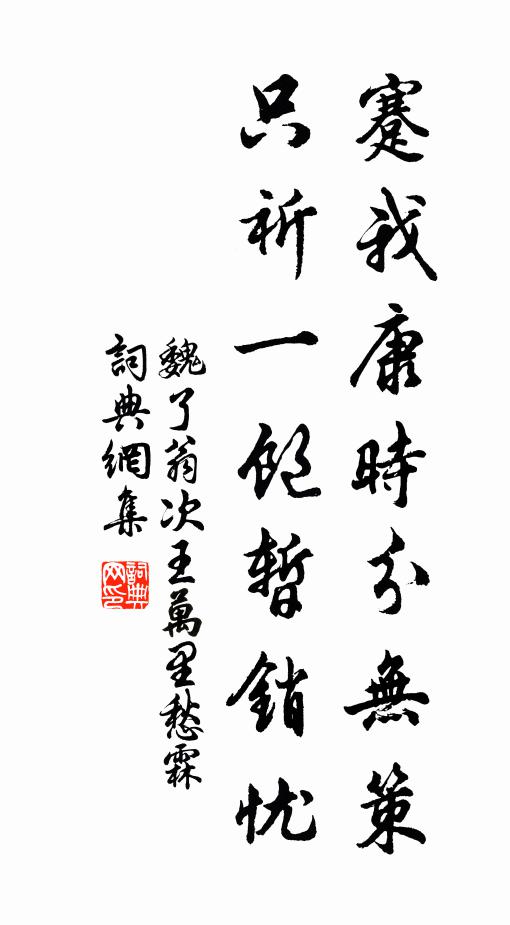 蹇我康時分無策
只祈一飽暫銷忧
魏了翁次王萬里愁霖
詞典網集
詞典网印